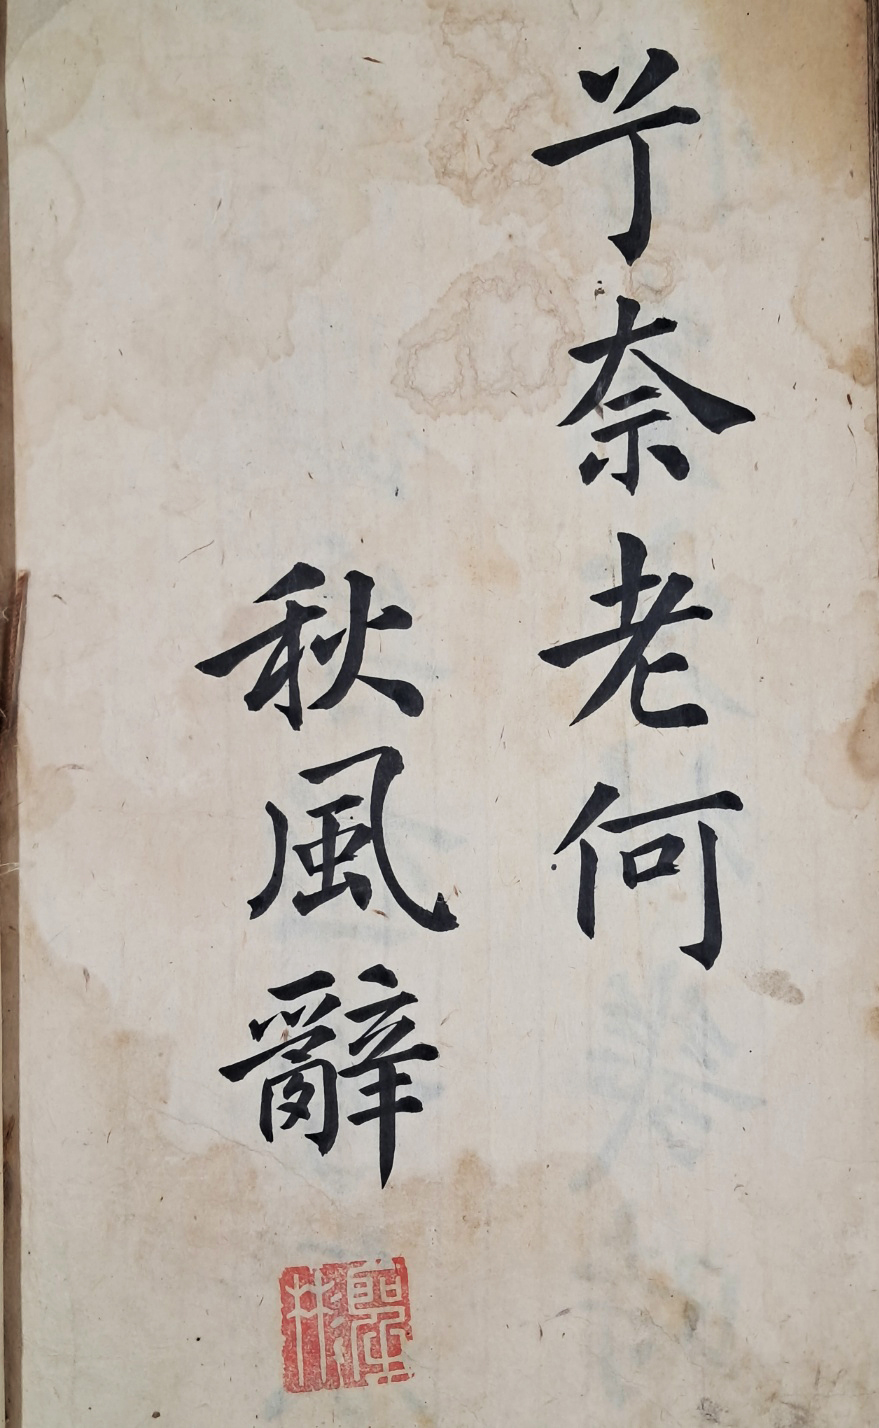 兮奈老何
秋風辭